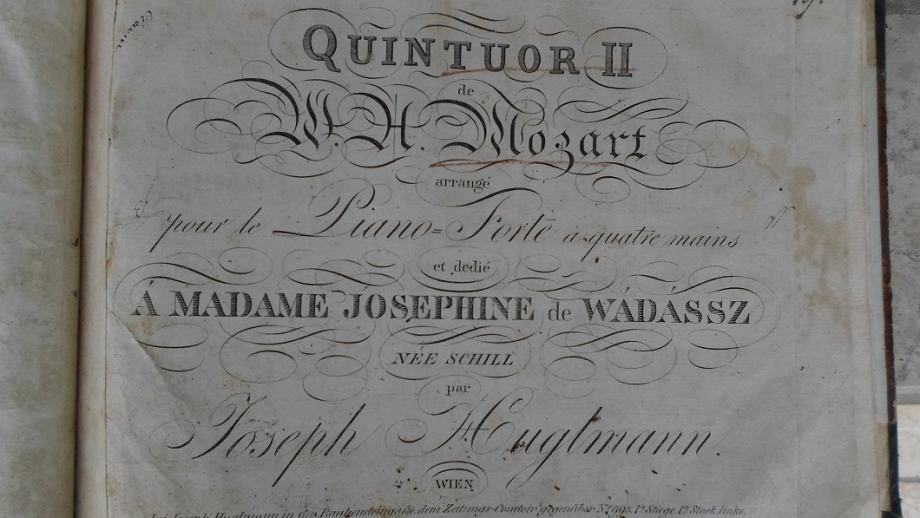 QUINTUOR II
de
W. A. Mozart
arrangé
pour le Piano=Forte à quatre mains
et dedié
Á MADAME JOSEPHINE de WÁDÁSSZ
NÉE SCHILL
par
Joseph Huglmann.
WIEN
Joseph Huglmann in der Rauhensteingasse, dem Zeitungs-Comtoir gegenüber No. 995, 1te Stiege, 1ter Stock, links.